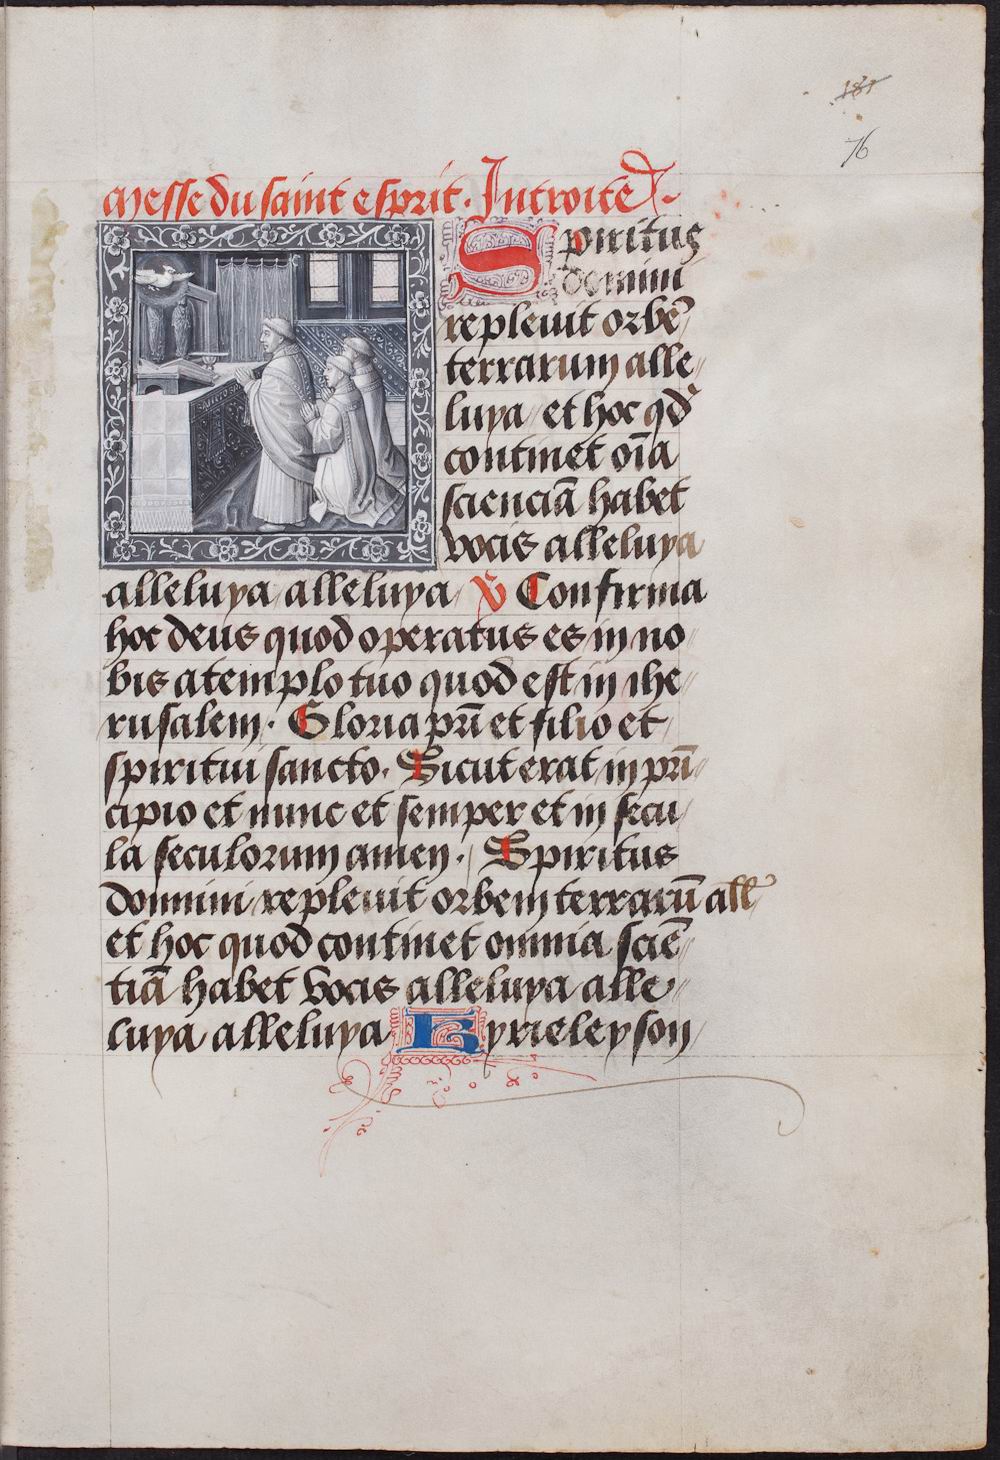 181
76
Messe du saint esprit. Introite.
Spiritus
domini
repleuit orbē
terrarum alle
luya et hoc qd̄
continet oīa
scienciā habet
vocis alleluya
alleluya alleluya ℣ Confirma
hoc deus quod operatus es in no
bis a templo tuo quod est in ihe
rusalem. Gloria pr̄i et filio et
spiritui sancto. Sicut erat in prī
cipio et nunc et semper et in secu
la seculorum amen. Spiritus
domini repleuit orbem terrarū all'
et hoc quod continet omnia sciē
tiā habet vocis alleluya alle
luya alleluya Kyrieleyson